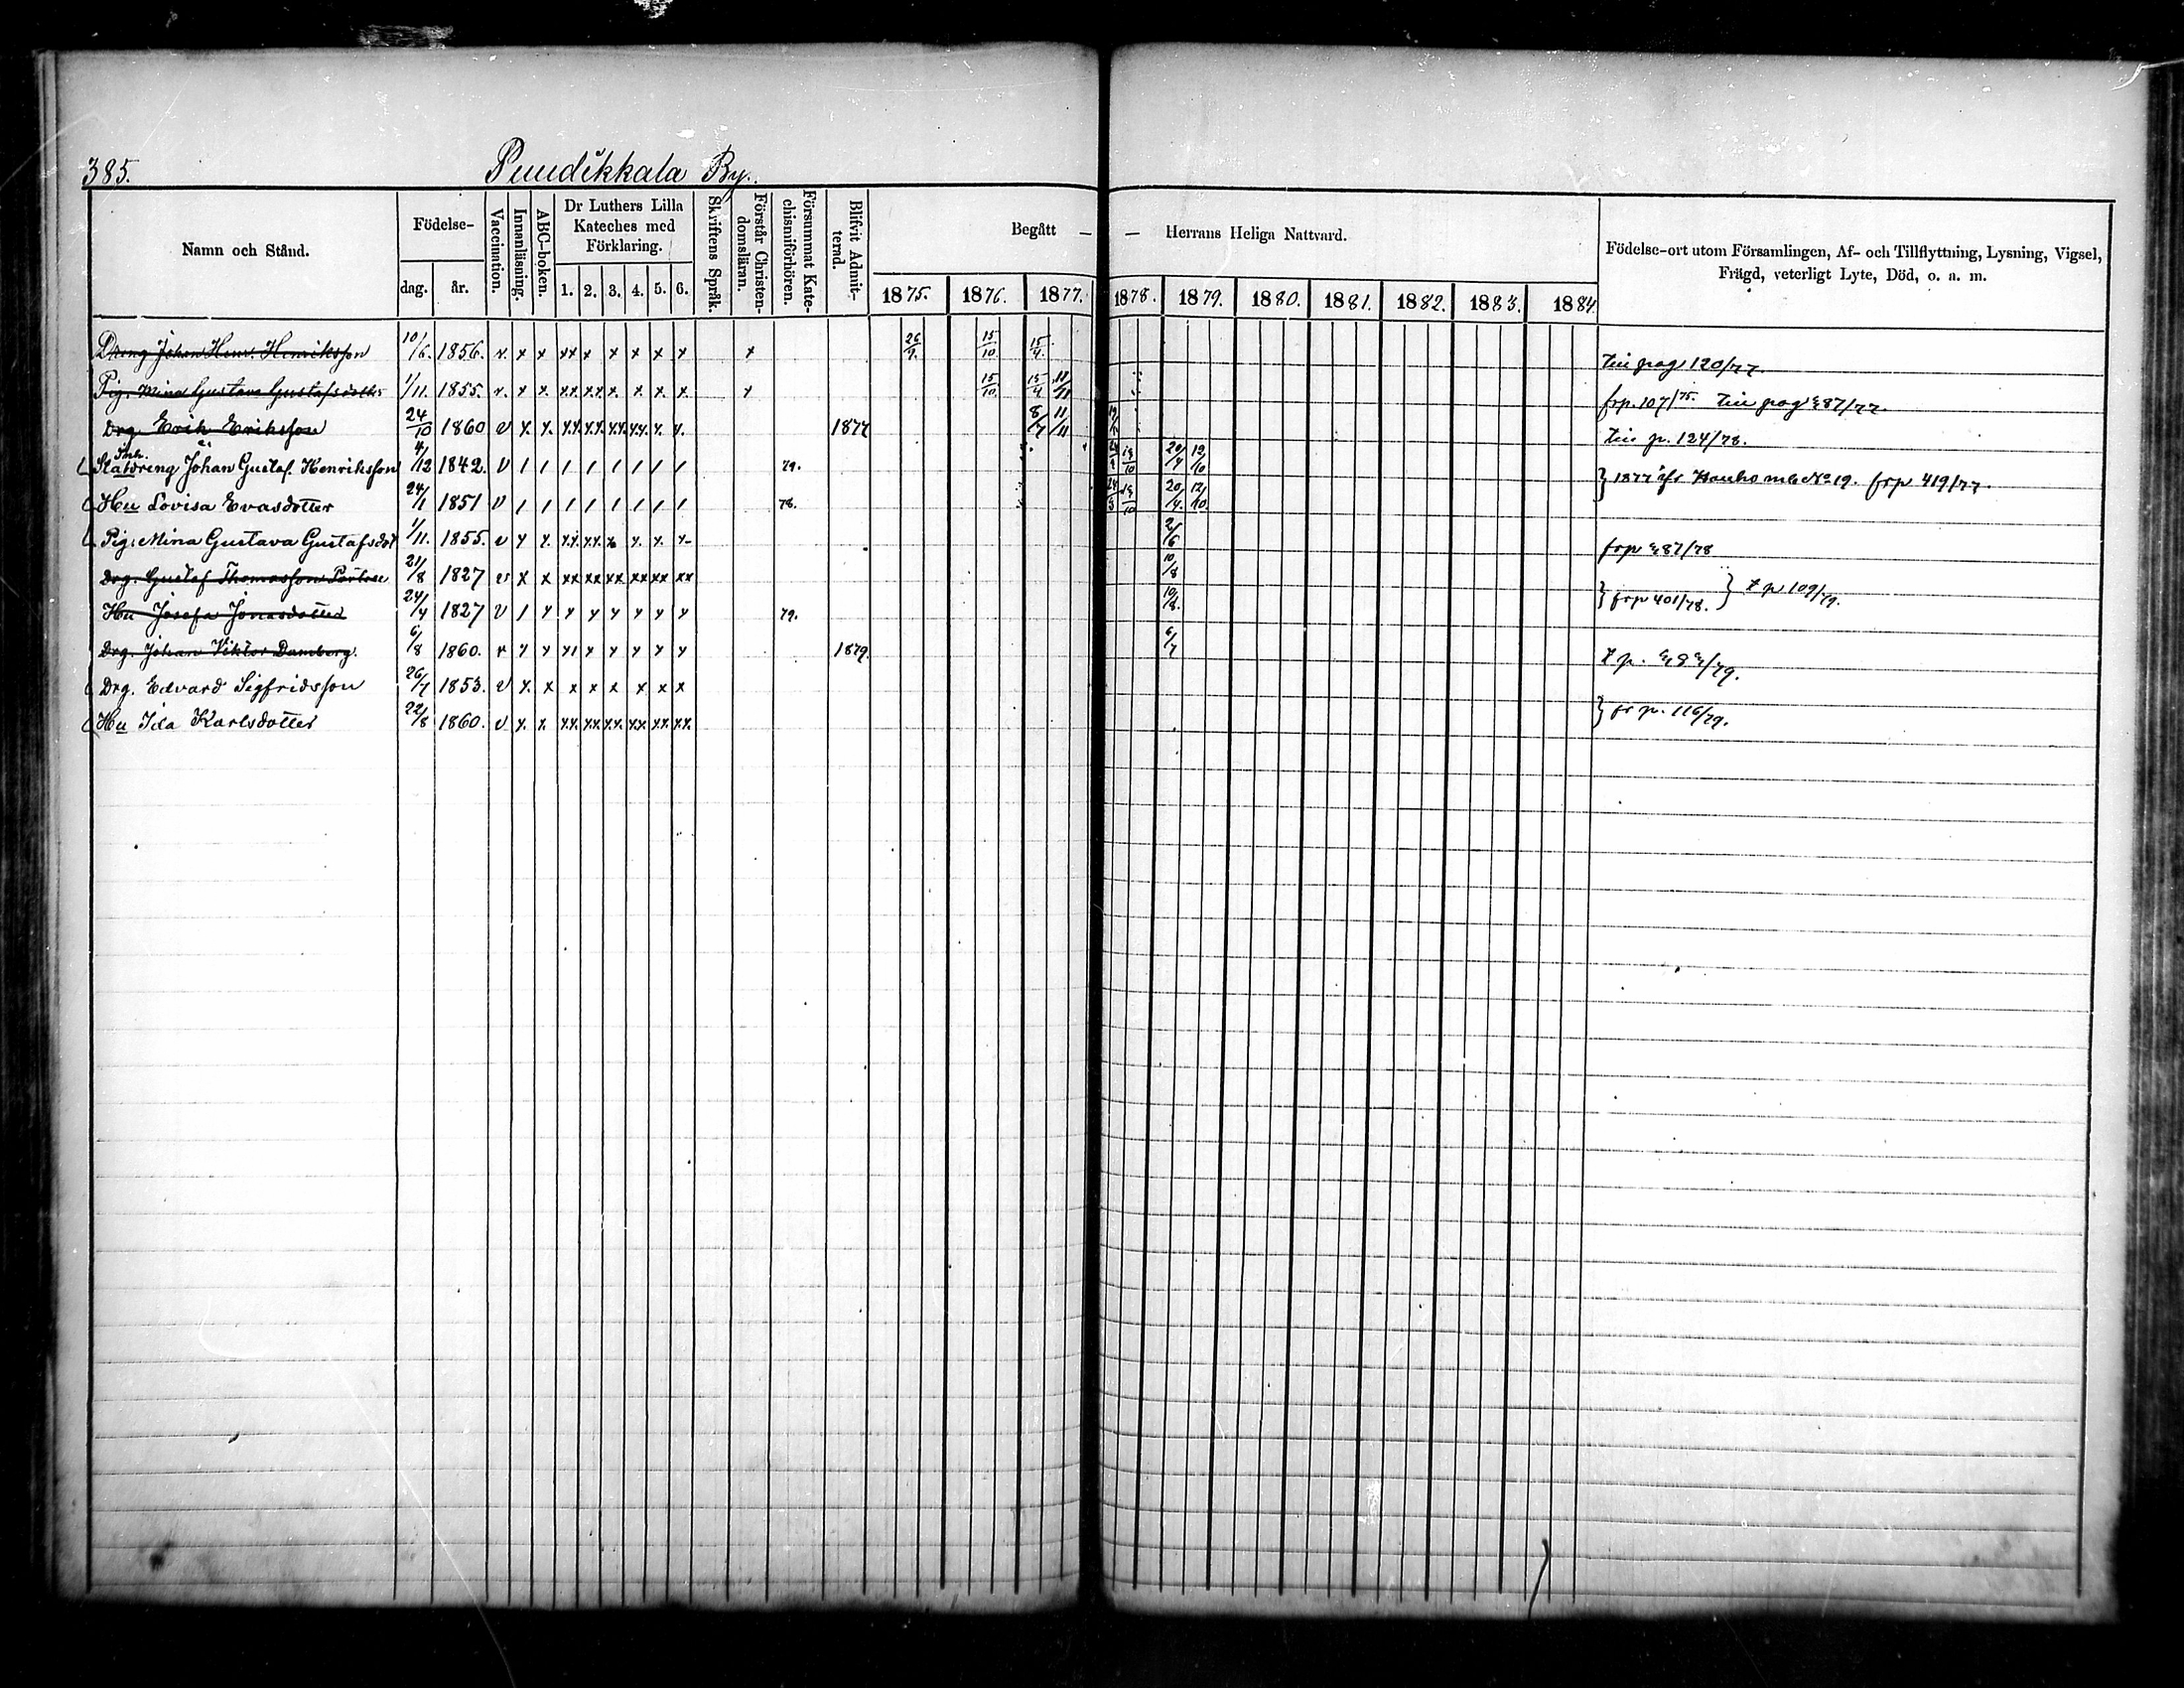 385.
Puudikkala By.
Namn och Stånd.
Födelse-
dag.
år.
Vaccination.
Innanläsning.
ABC-boken.
Dr Luthers Lilla
Kateches med
Förklaring.
1. 2. 3. 4. 5. 6.
Skriftens Språk.
Förstår Christen-
domsläran.
Försummat Kate-
chismiförhören.
Blifvit Admit-
terad.
Begått — — Herrans Heliga Nattvard.
1875. 1876. 1877. 1878. 1879. 1880. 1881. 1882. 1883. 1884
Födelse-ort utom Församlingen, Af- och Tillflyttning, Lysning, Vigsel,
Frägd, veterligt Lyte, Död, o. a. m.
Dreng Johan Henr. Henriksson 10/6. 1856. v. x x xx x x x x x x 26/9. 15/10 15/4. till pag 120/77.
Pig. Mina Gustava Gustafsdotter 1/11. 1855. v. x x. xx xx x. x x. x. x 15/10. 15/4 11/11 frp. 107/75. till pag 287/77.
Drg. Erik Eriksson 24/10 1860 v x x. xx xx. xx. xx. x. x. 1877 8/7 11/11 till p. 124/78.
Inh.
Statdreng Johan Gustaf Henriksson 4/12 1842. v / / / / / / / / 79. 20/4 12/10
} 1877 ifr Kauho mb No 19. frp 419/77.
Hu Lovisa Evasdotter 24/1 1851 v / / / / / / / / 78. 20/4. 12/10.
Pig. Mina Gustava Gustafsdot 1/11. 1855. v x x. xx xx. x x. x. x- 2/6 frp 287/78
Drg. Gustaf Thomasson 21/8 1827 v x x xx xx xx xx xx xx 10/8
} frp 401/78. } t p 109/79.
Hu Josefa Jonasdotter 24/4 1827 v / x x x x x x x 79. 10/8.
Drg. Johan Viktor Damberg. 6/8 1860. v x x x/ x x x x x 1879. 6/7 t p. 282/79.
Drg. Edvard Sigfridsson 26/7 1853. v x. x x x x x x x
} fr p. 116/79.
Hu Ida Karlsdotter 22/8 1860. v x. x xx. xx xx. xx xx. xx.